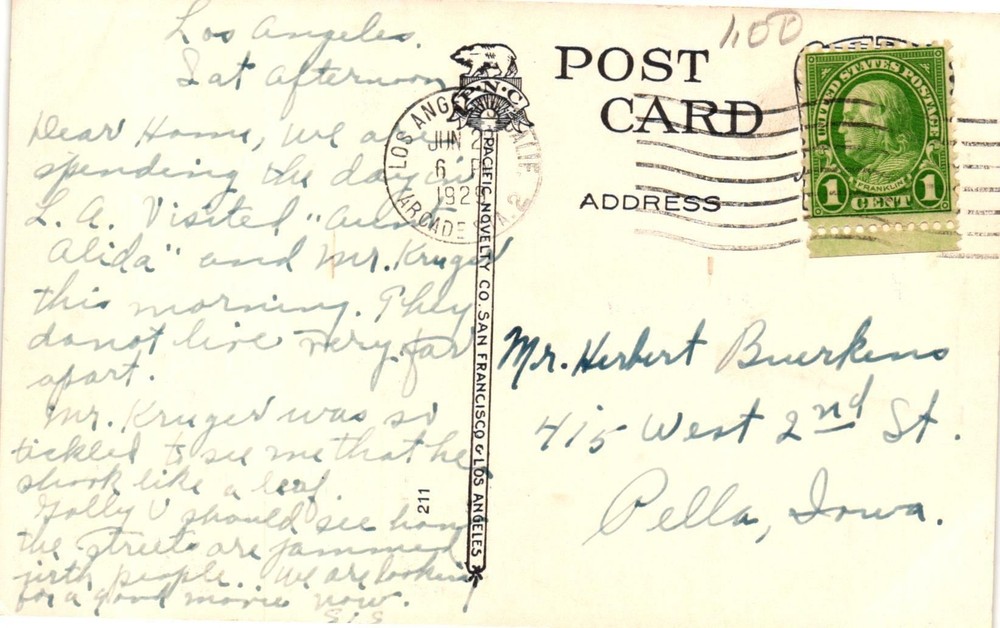 Los Angeles.
Sat afternoon
Dear Home, We are
spending the day in
L. A. Visited "Aunt
Alida" and Mr. Kruger
this morning. They
do not live very far
apart.
Mr. Kruger was so
tickled to see me that he
shook like a leaf.
Golly U should see how
the streets are jammed
with people. We are looking
for a good movie now.
Sis
P.N.C.
LOS ANG CALIF
JUN 2
6
192
ARCADE STA.
PACIFIC NOVELTY CO. SAN FRANCISCO & LOS ANGELES
211
1.00
POST
CARD
ADDRESS
UNITED STATES POSTAGE
FRANKLIN
1 CENT 1
Mr. Herbert Buerkens
415 West 2nd St.
Pella, Iowa.